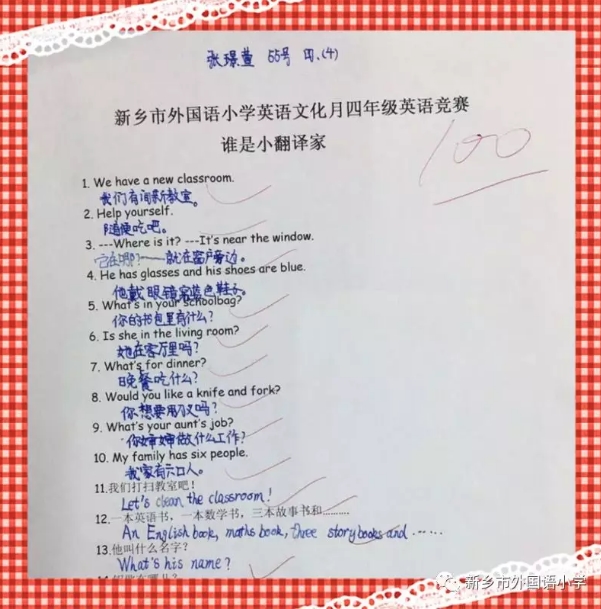 张璟萱 55号 四.(4)
新乡市外国语小学英语文化月四年级英语竞赛
谁是小翻译家
100
1. We have a new classroom.
我们有间新教室。
2. Help yourself.
随便吃吧。
3. ---Where is it? ---It's near the window.
它在哪?——就在窗户旁边。
4. He has glasses and his shoes are blue.
他戴眼镜穿蓝色鞋子。
5. What's in your schoolbag?
你的书包里有什么?
6. Is she in the living room?
她在客厅里吗?
7. What's for dinner?
晚餐吃什么?
8. Would you like a knife and fork?
你想要刀叉吗?
9. What's your aunt's job?
你婶婶做什么工作?
10. My family has six people.
我家有六口人。
11.我们打扫教室吧!
Let's clean the classroom!
12.一本英语书,一本数学书,三本故事书和………
An English book, maths book, three storybooks and ……
13.他叫什么名字?
What's his name?
新乡市外国语小学